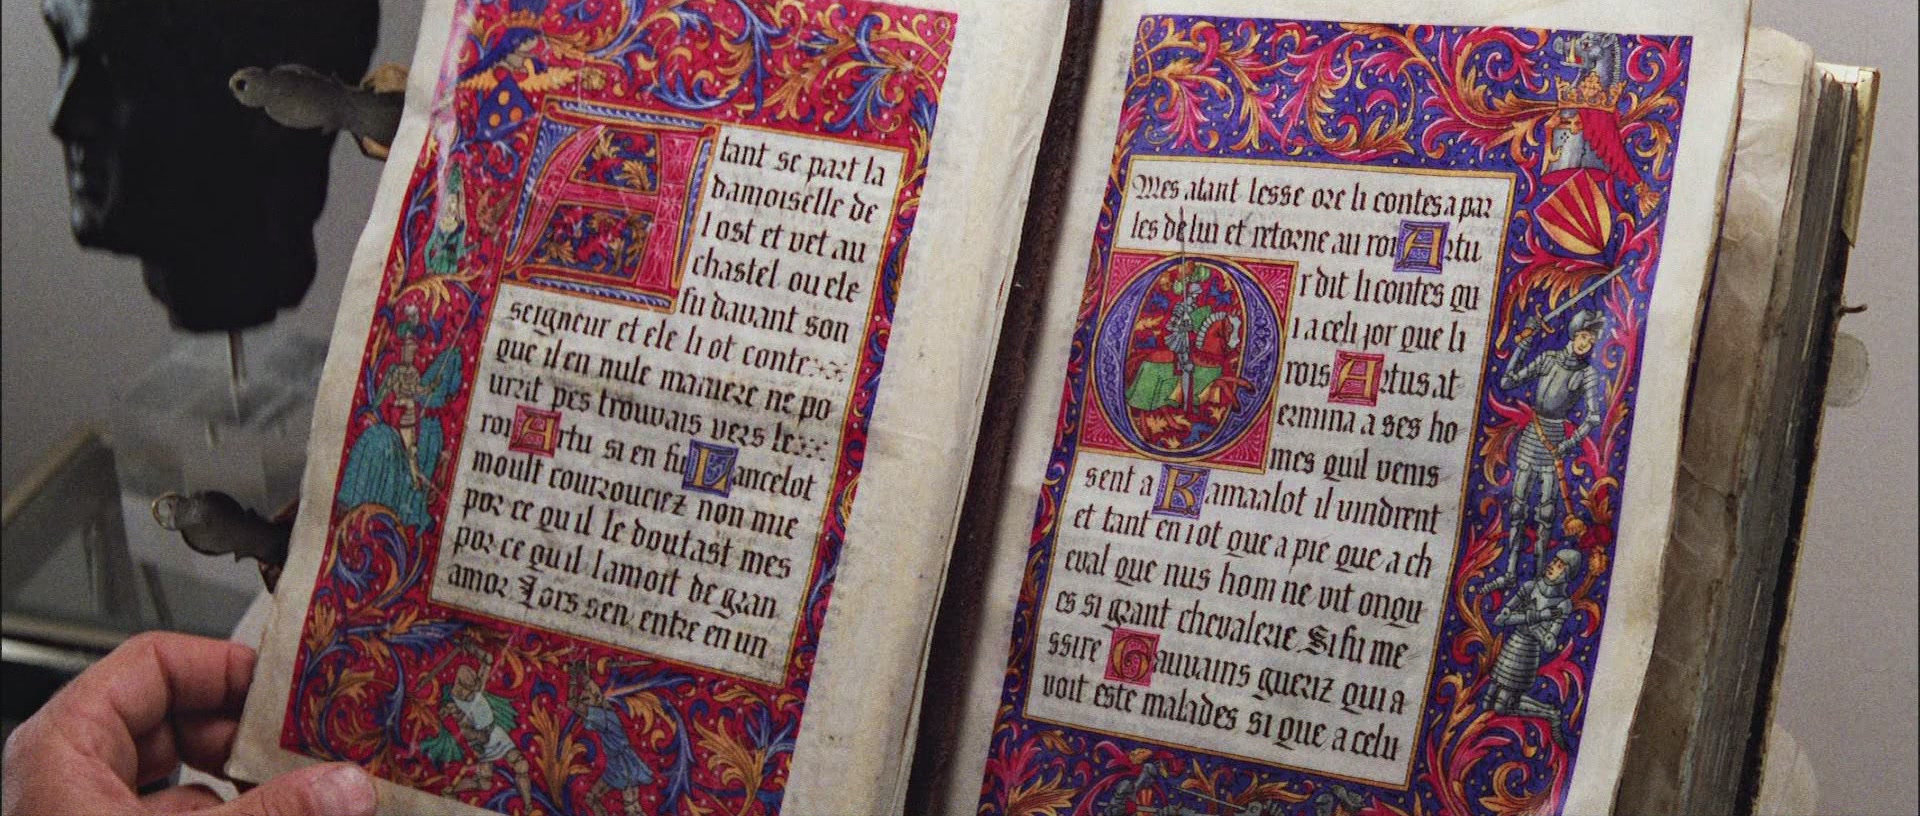 Atant se part la
damoiselle de
l ost et vet au
chastel ou ele
fu davant son
seigneur et ele li ot conte
que il en nule maniere ne po
urrit pes trouvais vers le
roi Artu si en fu Lancelot
moult courrouciez non mie
por ce qu il le doutast mes
por ce quil l amoit de gran
amor Lors sen entre en un
Mes atant lesse ore li contes a par
les de lui et retorne au roi Artu
Or dit li contes qu
i a celi jor que li
rois Artus at
ermina a ses ho
mes quil venis
sent a Kamaalot il vindrent
et tant en i ot que a pie que a ch
eval que nus hom ne vit onqu
es si grant chevalerie Si fu me
ssire Gauvains gueriz qui a
voit este malades si que a celu